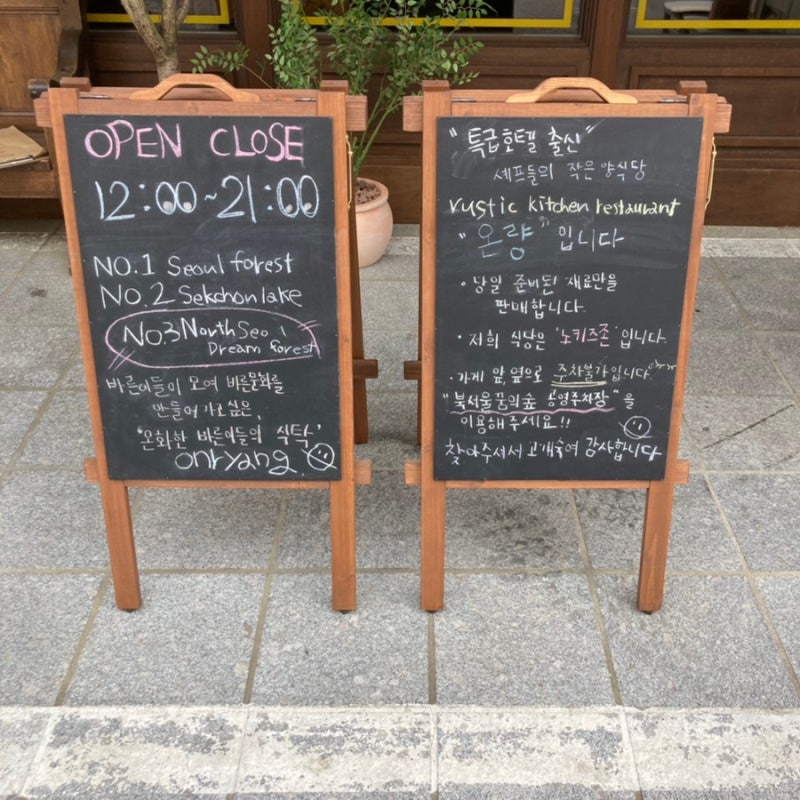 OPEN CLOSE
12:00~21:00
NO.1 Seoul forest
NO.2 Sekchon lake
NO.3 North Seo
Dream forest
바른이들이 모여 바른문화를
만들어 가고싶은,
'온화한 바른이들의 식탁'
onryang
"특급호텔 출신"
셰프들의 작은 양식당
rustic kitchen restaurant
"온량" 입니다
· 당일 준비된 재료만을
판매합니다.
· 저희 식당은 '노키즈존' 입니다.
· 가게 앞, 옆으로 주차불가입니다.
"북서울꿈의숲 공영주차장"을
이용해주세요!!
찾아주셔서 고개숙여 감사합니다